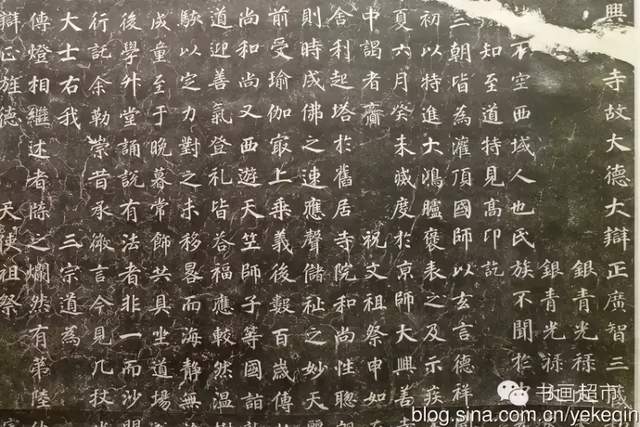 興寺故大德大辯正廣智三
銀青光祿
銀青光祿
不空西域人也氏族不聞於
知至道特見高卬訖
三朝皆為灌頂國師以玄言德祥
初以特進大鴻臚褒表之及示疾
夏六月癸未滅度於京師大興善
中謁者齎 祝文祖祭申如
舍利起塔於舊居寺院和尚性聰
則時成佛之速應聲儲祉之妙天
前受瑜伽最上乘義後數百歲傳
尚和尚又西遊天竺師子等國詣
道迎善氣登礼皆答福應較然溫樹
駃以定力對之未移晷而海靜無
成童至于晚暮常飾共具坐道場
後學升堂誦說有法者非一而沙門
行託余勒崇昔承微言今見几杖
大士右我 三宗道為
傳燈相繼述者牒之爛然有第陸
辯正旌德 天使祖祭
书画超市
blog.sina.com.cn/yekeqin